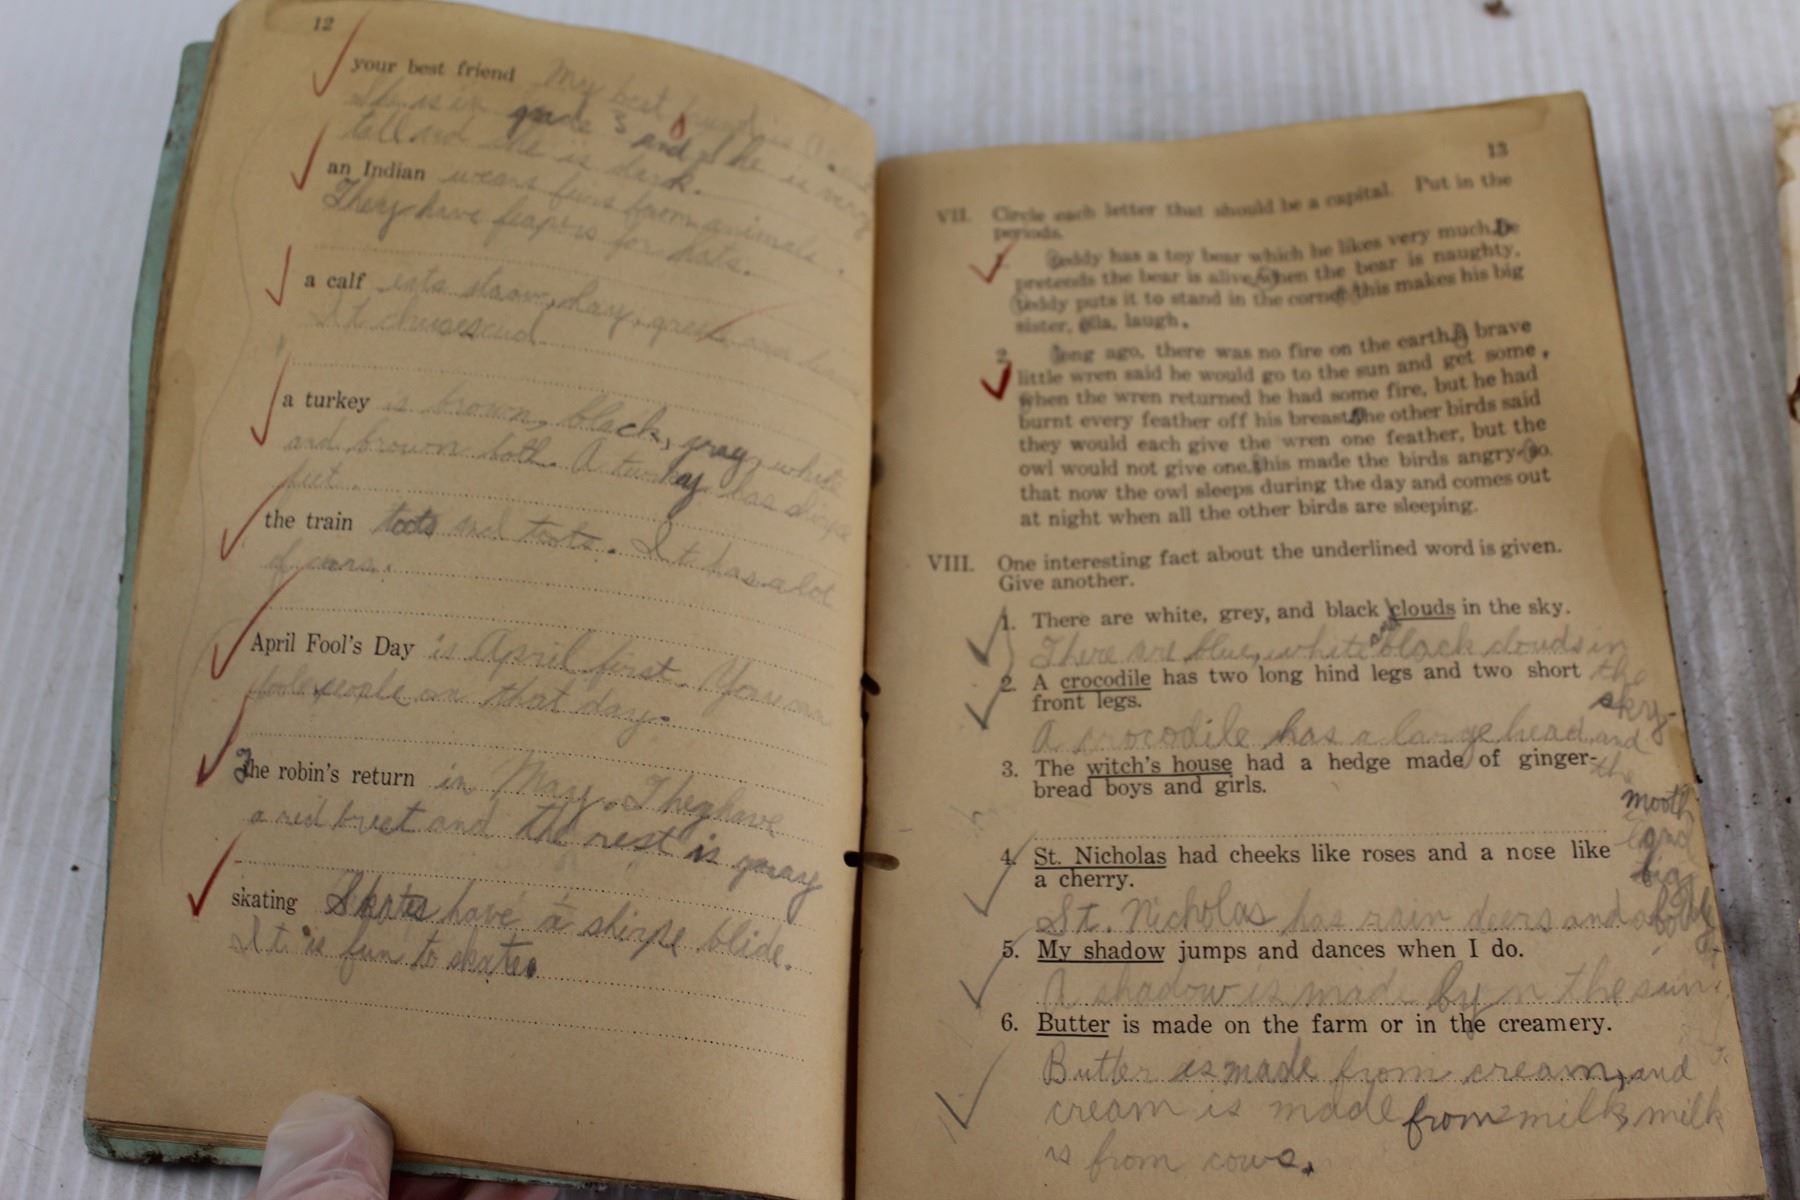 12
your best friend My best friend is
She is in grade 3 and she is very
tall and she is dark.
an Indian wears furs from animals.
They have feapors for hats.
a calf eats straw, hay,
It chuees cud
a turkey is brown, black, gray, white
and brown both. A turkey has
feet.
the train toots and toots. It has a lot
of cars.
April Fool's Day is April first. You can
fool people on that day.
The robin's return in May. They have
a red brest and the rest is gray
skating Skates have a shirpe blide.
It is fun to skate.
13
VII. Circle each letter that should be a capital. Put in the
periods.
teddy has a toy bear which he likes very much. he
pretends the bear is alive. when the bear is naughty,
teddy puts it to stand in the corner. this makes his big
sister, ella, laugh.
2. long ago, there was no fire on the earth. A brave
little wren said he would go to the sun and get some.
when the wren returned he had some fire, but he had
burnt every feather off his breast. the other birds said
they would each give the wren one feather, but the
owl would not give one. this made the birds angry. so
that now the owl sleeps during the day and comes out
at night when all the other birds are sleeping.
VIII. One interesting fact about the underlined word is given.
Give another.
1. There are white, grey, and black clouds in the sky.
There are blue, white and black clouds in
the
sky.
2. A crocodile has two long hind legs and two short
front legs.
A crocodile has a large head and
the
mooth
and
big
3. The witch's house had a hedge made of ginger-
bread boys and girls.
4. St. Nicholas had cheeks like roses and a nose like
a cherry.
St. Nicholas has rain deers and a
5. My shadow jumps and dances when I do.
A shadow is made by n the sun.
6. Butter is made on the farm or in the creamery.
Butter is made from cream, and
cream is made from milk, milk
is from cows.